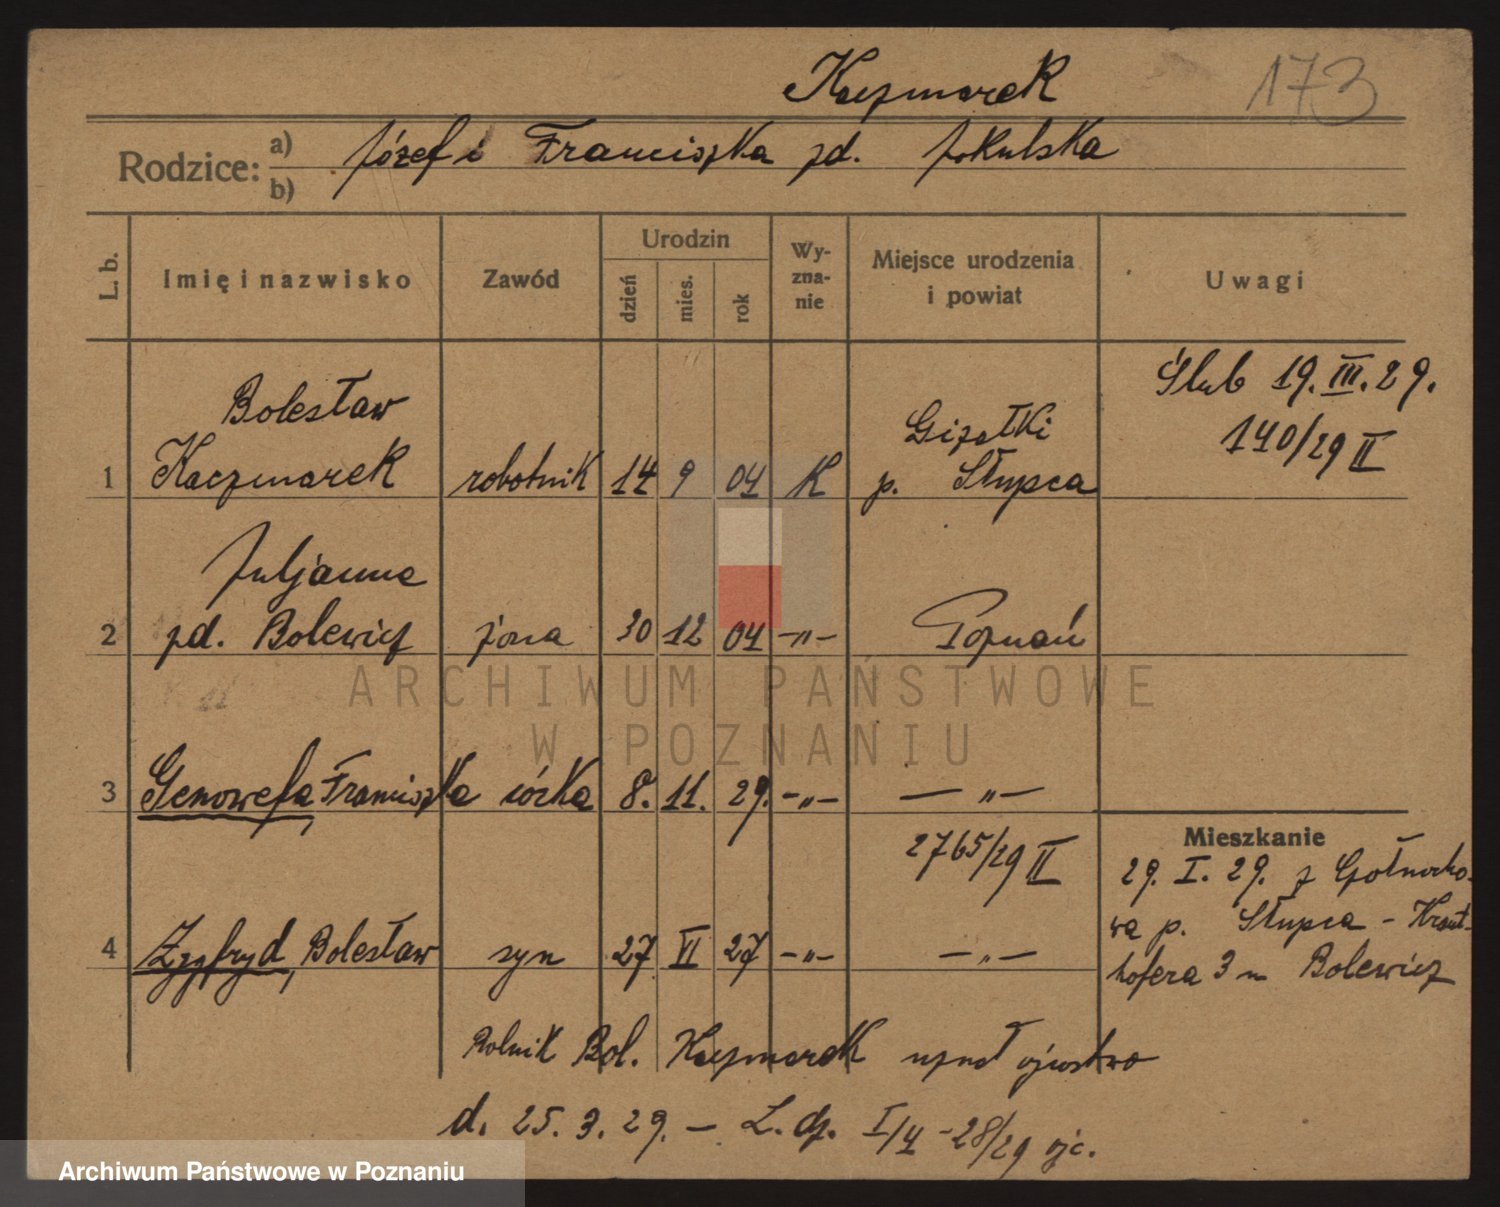 Kaczmarek 173
Rodzice: a) Józef i Franciszka zd. Jokulska
b)
L. b. Imię i nazwisko Zawód Urodzin dzień mies. rok Wy-zna-nie Miejsce urodzenia i powiat Uwagi
Ślub 19. III. 29.
140/29 II
Bolesław Gizałki
1 Kaczmarek robotnik 14 9 04 K p. Słupca
Juljanna
2 zd. Bolewicz żona 30 12 04 -„- Poznań
ARCHIWUM PAŃSTWOWE
W POZNANIU
3 Genowefa, Franciszka córka 8. 11. 29. -„- -„-
2765/29 II
4 Zygfryd, Bolesław syn 27 VI 27 -„- -„-
Mieszkanie
29. I. 29. z
wa p. Słupca -
hofera 3 m Bolewicz
Rolnik Bol. Kaczmarek uznał ojcostwo
d. 25. 3. 29. -
Archiwum Państwowe w Poznaniu